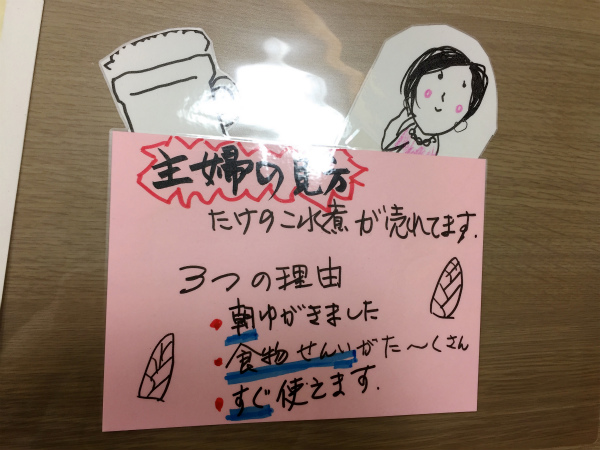 主婦の見方
たけのこ水煮が売れてます.
3つの理由
・朝ゆがきました
・食物せんいがた〜くさん
・すぐ使えます.